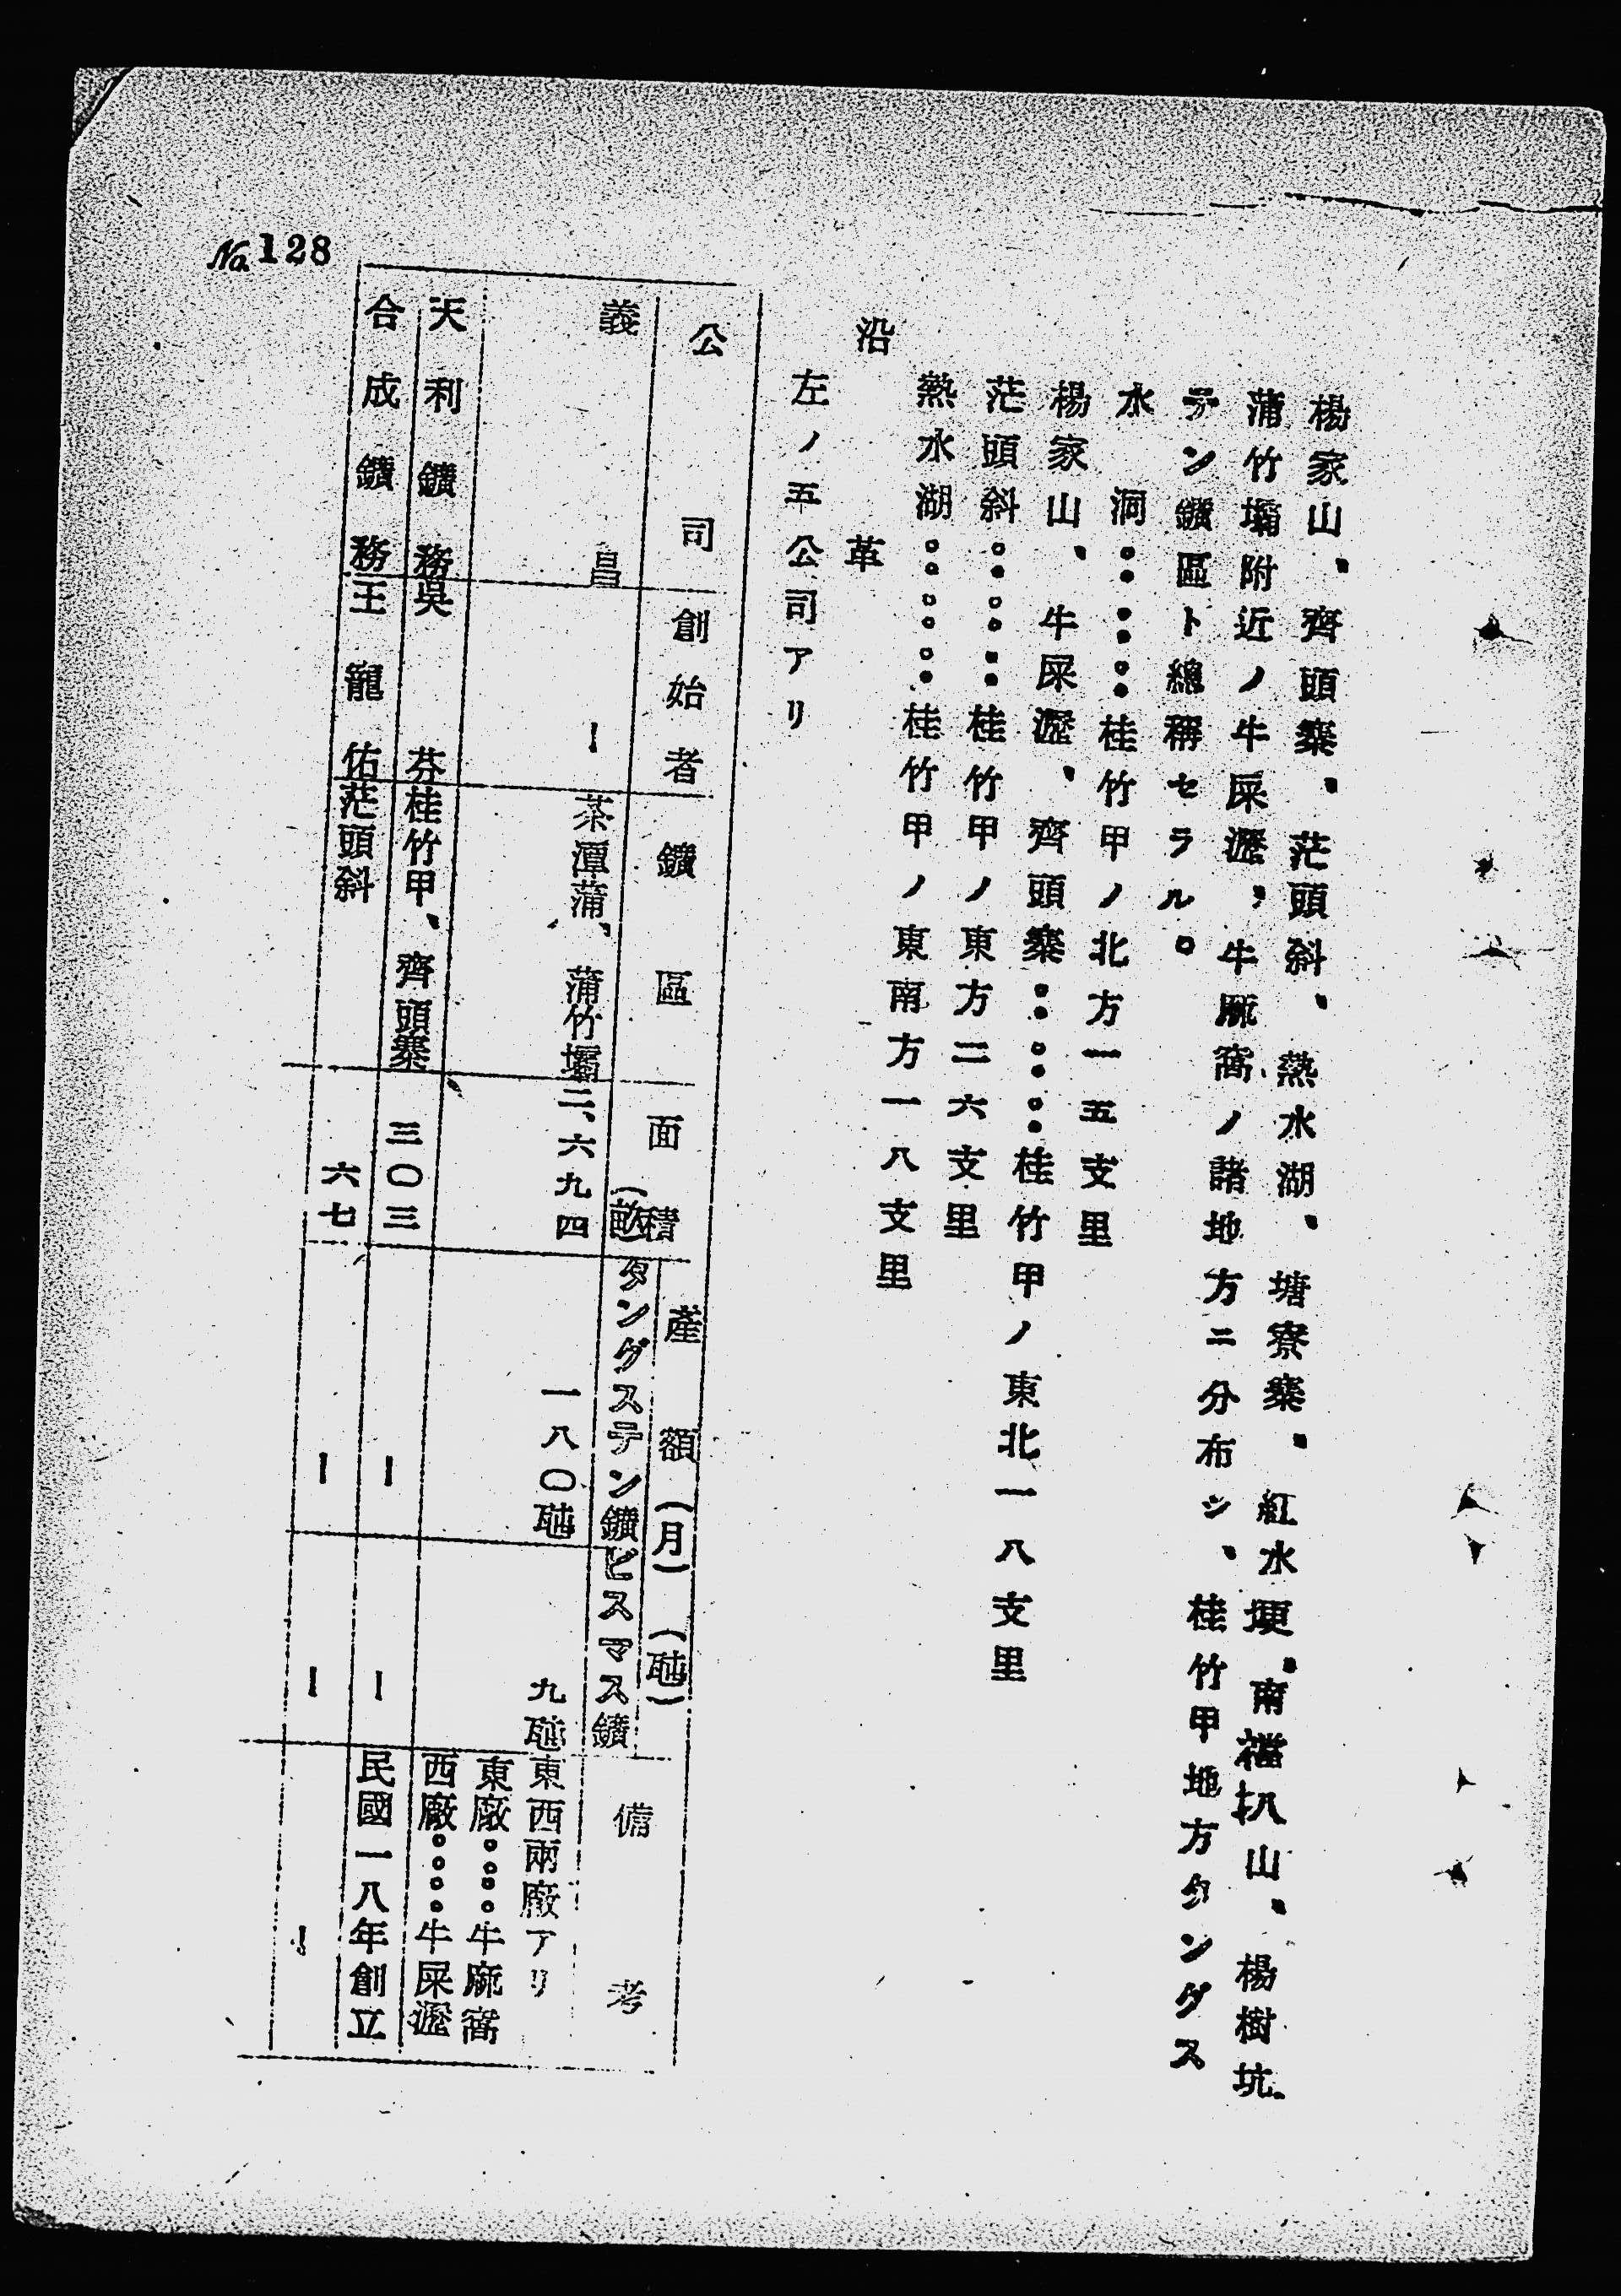 楊家山、齊頭寨、茫頭斜、熱水湖、塘寮寨、紅水埂、南 山、楊樹坑、
蒲竹壩附近ノ牛屎瀝、牛厰窩ノ諸地方ニ分布シ、桂竹甲地方タングス
テン鑛區ト總稱セラル。
水洞::::桂竹甲ノ北方一五支里
楊家山、牛屎瀝、齊頭寨::::桂竹甲ノ東北一八支里
茫頭斜::::桂竹甲ノ東方二六支里
熱水湖::::桂竹甲ノ東南方一八支里
沿革
左ノ五公司アリ
公司 創始者 鑛區 面積(畝) 產額(月)(瓲) 備考
タングステン鑛 ビスマス鑛
義昌 ー 茶潭蒲、蒲竹壩 二、六九四 一八〇瓲 九瓲 東西兩廠アリ
東廠::::牛厰窩
西廠::::牛屎瀝
天利鑛務 吳芬 桂竹甲、齊頭寨 三〇三 ー ー 民國一八年創立
合成鑛務 王寵佑 茫頭斜 六七 ー ー ー
No.128